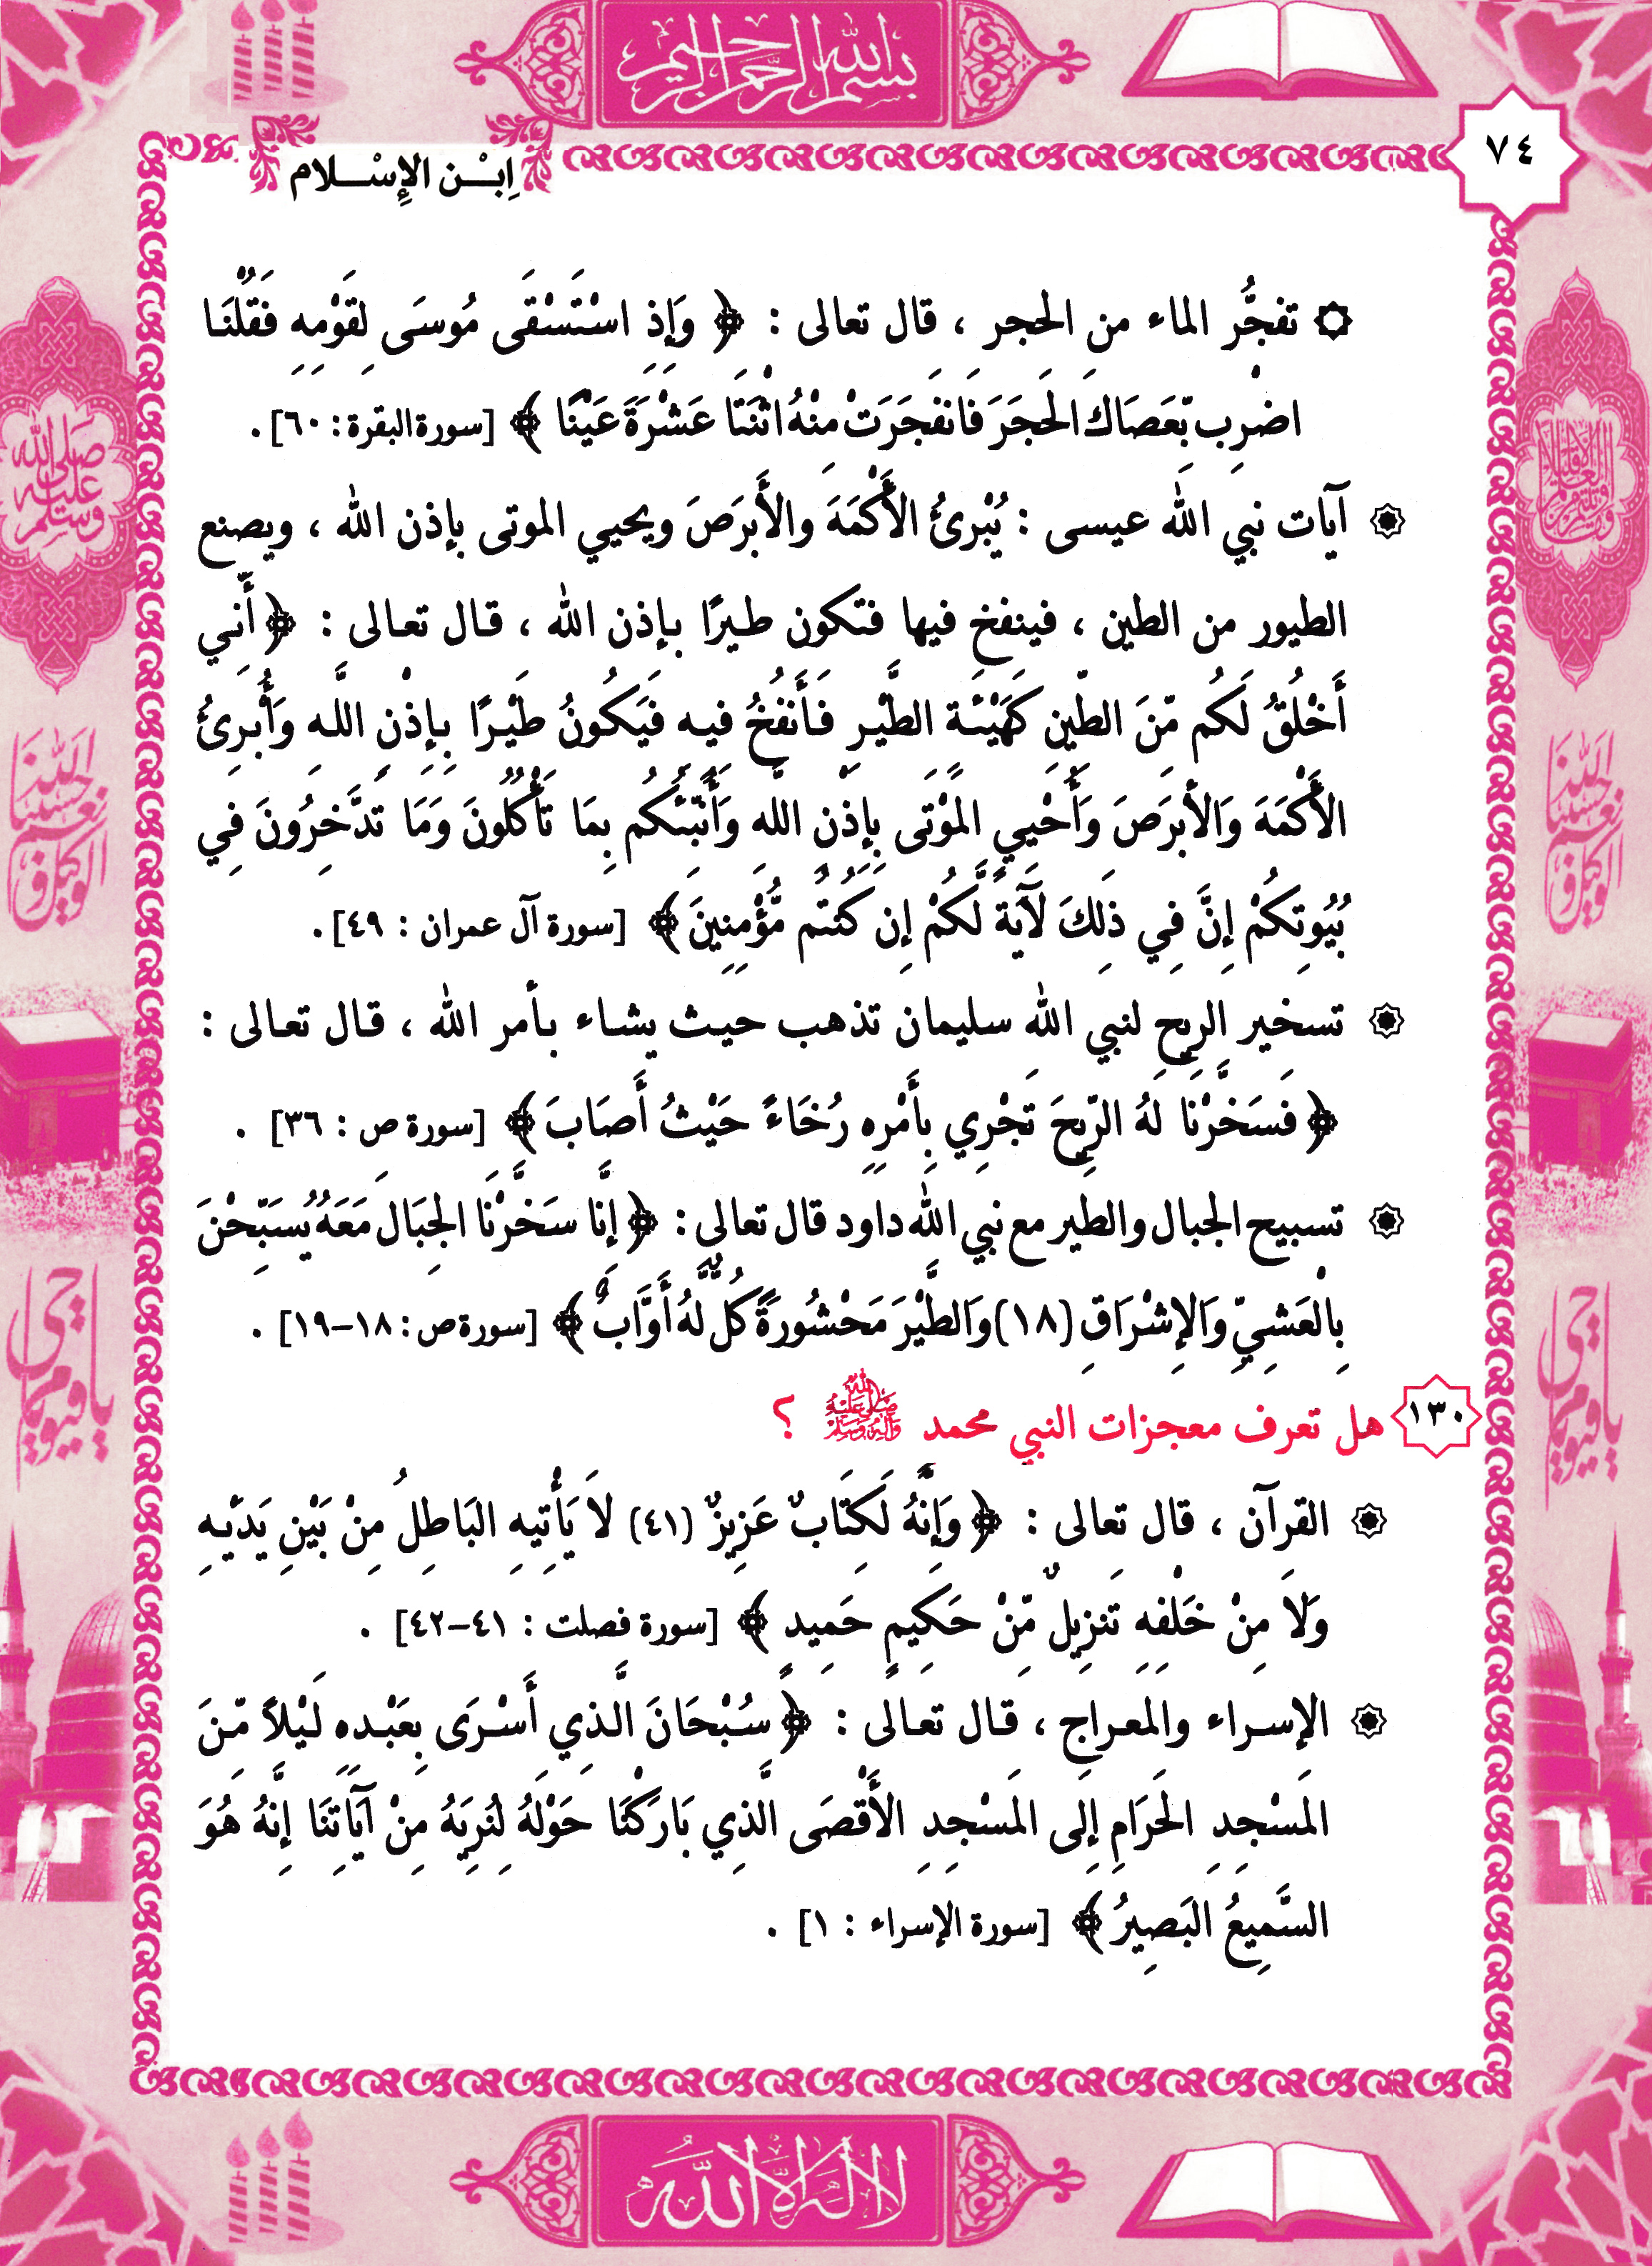 بسم الله الرحمن الرحيم
٧٤
اِبْن الإِسْلام
تفجُّر الماء من الحجر ، قال تعالى : ﴿ وَإِذِ اسْتَسْقَى مُوسَى لِقَوْمِهِ فَقُلْنَا
اضْرِب بِّعَصَاكَ الحَجَرَ فَانفَجَرَتْ مِنْهُ اثْنَتَا عَشْرَةَ عَيْنًا ﴾ [سورة البقرة : ٦٠] .
آيات نبي الله عيسى : يُبْرِئُ الأَكْمَهَ والأَبرَصَ ويحيي الموتى بإذن الله ، ويصنع
الطيور من الطين ، فينفخ فيها فتكون طيرًا بإذن الله ، قال تعالى : ﴿ أَنِّي
أَخْلُقُ لَكُم مِّنَ الطِّينِ كَهَيْئَةِ الطَّيْرِ فَأَنفُخُ فِيهِ فَيَكُونُ طَيْرًا بِإِذْنِ اللَّهِ وَأُبْرِئُ
الأَكْمَهَ وَالأَبرَصَ وَأُحْيِي المَوْتَى بِإِذْنِ اللَّهِ وَأُنَبِّئُكُم بِمَا تَأْكُلُونَ وَمَا تَدَّخِرُونَ فِي
بُيُوتِكُمْ إِنَّ فِي ذَلِكَ لَآيَةً لَّكُمْ إِن كُنتُم مُّؤْمِنِينَ ﴾ [سورة آل عمران : ٤٩] .
تسخير الريح لنبي الله سليمان تذهب حيث يشاء بأمر الله ، قال تعالى :
﴿ فَسَخَّرْنَا لَهُ الرِّيحَ تَجْرِي بِأَمْرِهِ رُخَاءً حَيْثُ أَصَابَ ﴾ [سورة ص : ٣٦] .
تسبيح الجبال والطير مع نبي الله داود قال تعالى : ﴿ إِنَّا سَخَّرْنَا الجِبَالَ مَعَهُ يُسَبِّحْنَ
بِالْعَشِيِّ وَالإِشْرَاقِ (١٨) وَالطَّيْرَ مَحْشُورَةً كُلٌّ لَّهُ أَوَّابٌ ﴾ [سورة ص : ١٨-١٩] .
١٣٠ هل تعرف معجزات النبي محمد ﷺ ؟
القرآن ، قال تعالى : ﴿ وَإِنَّهُ لَكِتَابٌ عَزِيزٌ (٤١) لاَ يَأْتِيهِ البَاطِلُ مِنْ بَيْنِ يَدَيْهِ
وَلاَ مِنْ خَلْفِهِ تَنزِيلٌ مِّنْ حَكِيمٍ حَمِيدٍ ﴾ [سورة فصلت : ٤١-٤٢] .
الإسراء والمعراج ، قال تعالى : ﴿ سُبْحَانَ الَّذِي أَسْرَى بِعَبْدِهِ لَيْلاً مِّنَ
المَسْجِدِ الحَرَامِ إِلَى المَسْجِدِ الأَقْصَى الَّذِي بَارَكْنَا حَوْلَهُ لِنُرِيَهُ مِنْ آيَاتِنَا إِنَّهُ هُوَ
السَّمِيعُ البَصِيرُ ﴾ [سورة الإسراء : ١] .
صلى الله عليه وسلم
حسبنا الله ونعم الوكيل
حسبنا الله ونعم الوكيل
يا حي يا قيوم
يا حي يا قيوم
لا إله إلا الله